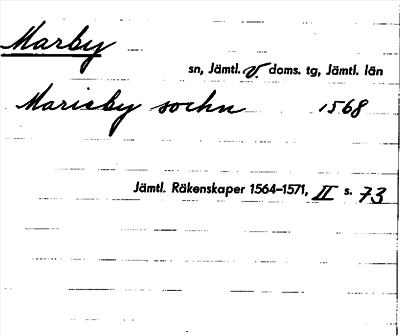 Marby
sn, Jämtl. v. doms. tg, Jämtl. län
Marieby sochn 1568
Jämtl. Räkenskaper 1564–1571, II s. 73